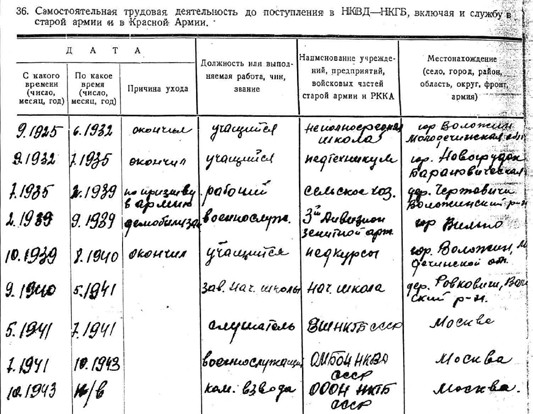 36. Самостоятельная трудовая деятельность до поступления в НКВД—НКГБ, включая и службу в
старой армии и в Красной Армии.
ДАТА
С какого времени (число, месяц, год)
По какое время (число, месяц, год)
Причина ухода
Должность или выполняемая работа, чин, звание
Наименование учреждений, предприятий, войсковых частей старой армии и РККА
Местонахождение (село, город, район, область, округ, фронт, армия)
9.1925 6.1932 окончил учащийся школа гор Воложин
9.1932 7.1935 окончил учащийся педтехникум гор. Новогрудок
Барановическая
7.1935 2.1939 по призыву в армию рабочий сельское хоз. дер. Чертовичи
Воложинский р-н
2.1939 9.1939 военнослуж. 3й дивизион зенитной арт. гор Вильно
10.1939 8.1940 окончил учащийся педкурсы гор. Воложин,
9.1940 5.1941 зав. нач. школы нач. школа дер.
ский р-н.
5.1941 7.1941 слушатель ВШ НКГБ СССР Москва
7.1941 10.1943 военнослужащий ОМСБОН НКВД СССР Москва
10.1943 н/в ком. взвода ОООН НКГБ СССР Москва.